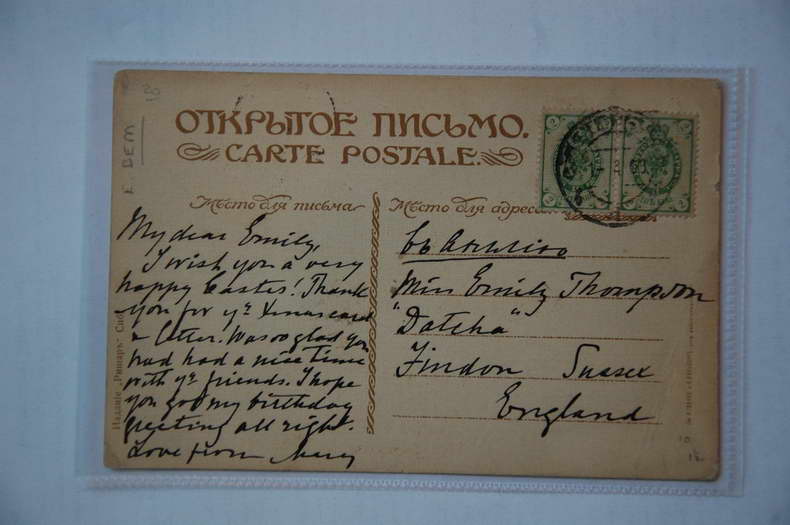 ОТКРЫТОЕ ПИСЬМО.
CARTE POSTALE.
Мѣсто для письма
Мѣсто для адреса
My dear Emily,
I wish you a very
happy Easter! Thank
you for yr Xmas card
& letter. Was so glad you
had had a nice time
with yr friends. I hope
you got my birthday
greeting all right.
Love from Mary
Miss Emily Thompson
"Datcha"
Findon Sussex
England
E. BEM
Изданіе „Ришаръ“ Спб.